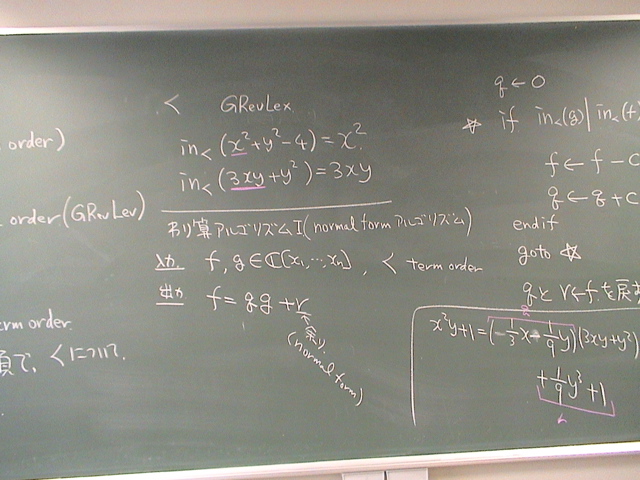 order)
order (GRevLex)
term order.
項で、<について.
< GRevLex
in<(x²+y²-4)=x²
in<(3xy+y²)=3xy
わり算アルゴリズムI(normal form アルゴリズム)
入力 f, g∈ℂ[x₁,…,xₙ], < term order
出力 f=qg+r
余り
(normal form)
q←0
☆ if in<(g)|in<(f
f←f-c
q←q+c
endif
goto ☆
qとr←fを戻す
q
x²y+1=(-1/3x 1/9y)(3xy+y²)
+1/9y³+1
r